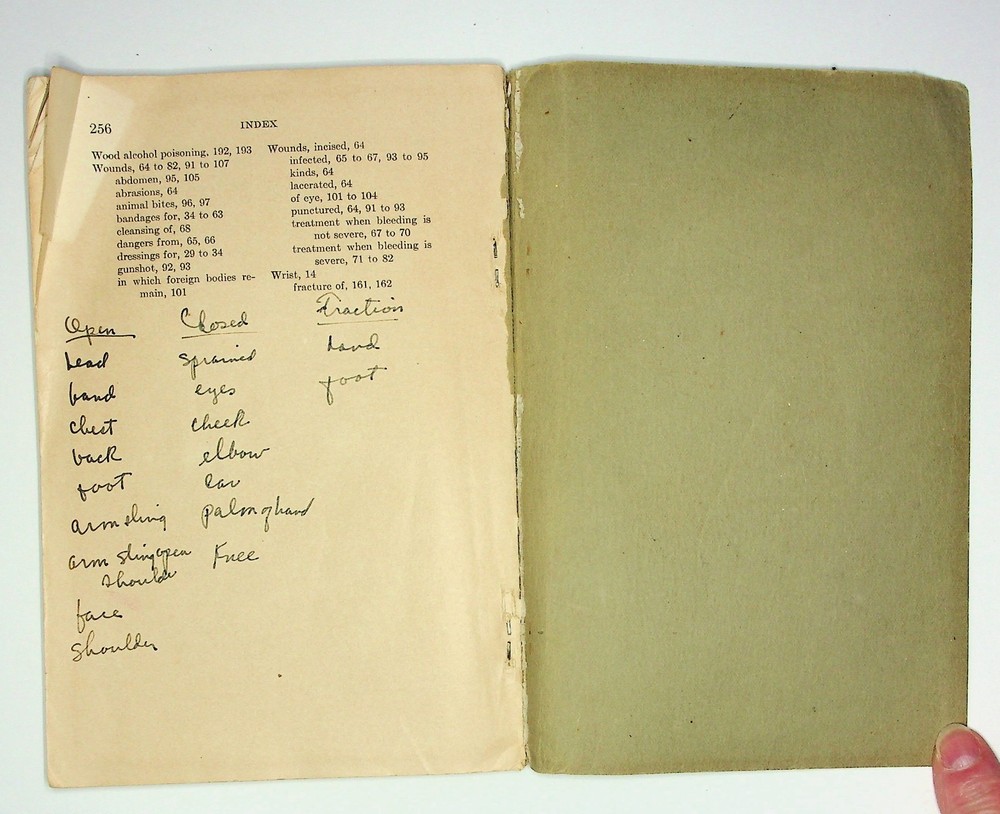 256
INDEX
Wood alcohol poisoning, 192, 193
Wounds, 64 to 82, 91 to 107
abdomen, 95, 105
abrasions, 64
animal bites, 96, 97
bandages for, 34 to 63
cleansing of, 68
dangers from, 65, 66
dressings for, 29 to 34
gunshot, 92, 93
in which foreign bodies re-
main, 101
Wounds, incised, 64
infected, 65 to 67, 93 to 95
kinds, 64
lacerated, 64
of eye, 101 to 104
punctured, 64, 91 to 93
treatment when bleeding is
not severe, 67 to 70
treatment when bleeding is
severe, 71 to 82
Wrist, 14
fracture of, 161, 162
Open
head
hand
chest
back
foot
arm sling
arm sling open
shoulder
face
shoulder
Closed
sprained
eyes
cheek
elbow
ear
palm of hand
Knee
Traction
hand
foot